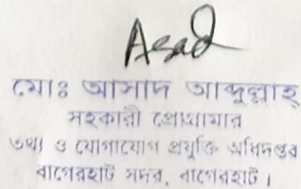 Asad
মোঃ আসাদ আব্দুল্লাহ্
সহকারী প্রোগ্রামার
তথ্য ও যোগাযোগ প্রযুক্তি অধিদপ্তর
বাগেরহাট সদর, বাগেরহাট।